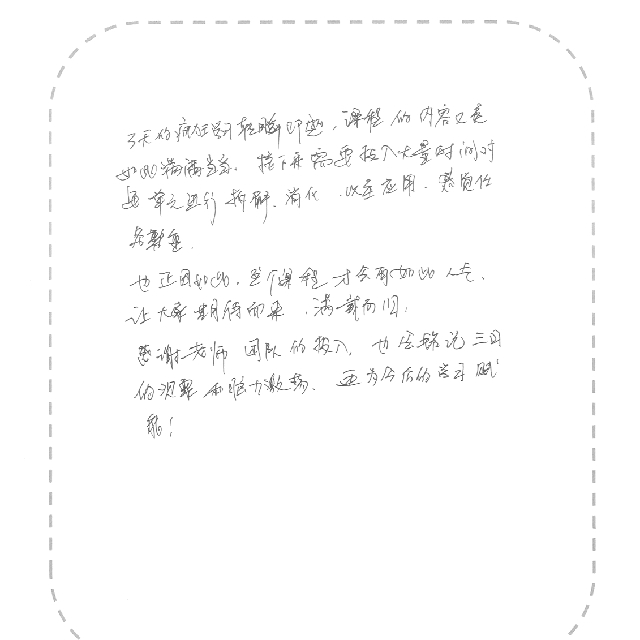 3天的疯狂学习轻松即逝，课程的内容又是
如此满满当当。接下来需要投入大量时间对
每章节进行拆解、消化、以至应用，感觉任
务艰重。
也正因如此，这个课程才会有如此人气、
让大家期待而来，满载而归。
感谢老师团队的投入，也会铭记三日
的浸染和脑力激荡，更为今后的学习赋
能！